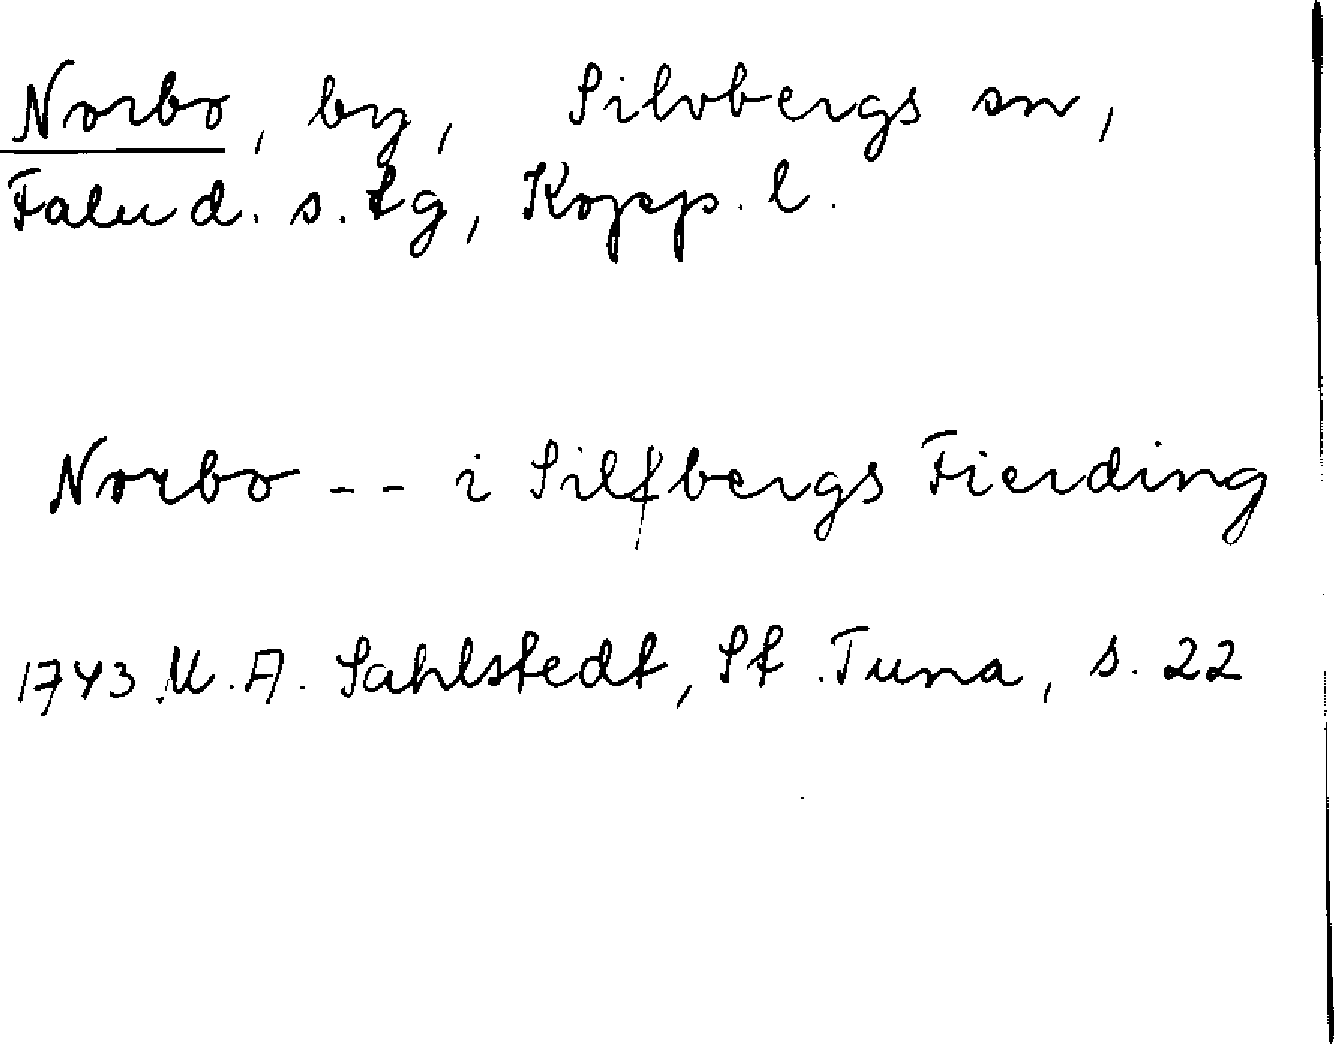 Norbo, by, Silvbergs sn,
Falu d. s. tg, Kopp. l.
Norbo -- i Silfbergs Fierding
1743 M. A. Sahlstedt, St. Tuna, s. 22